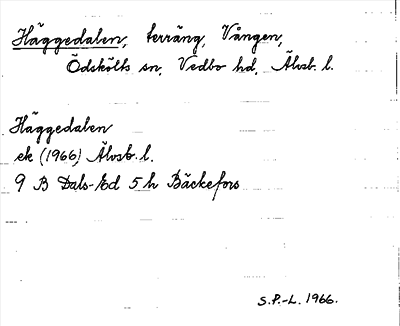 Häggedalen, terräng, Vången,
Ödskölts sn, Vedbo hd, Älvsb. l.
Häggedalen
ek (1966) Älvsb. l.
9 B Dals-Ed 5 h Bäckefors
S.P.-L. 1966.